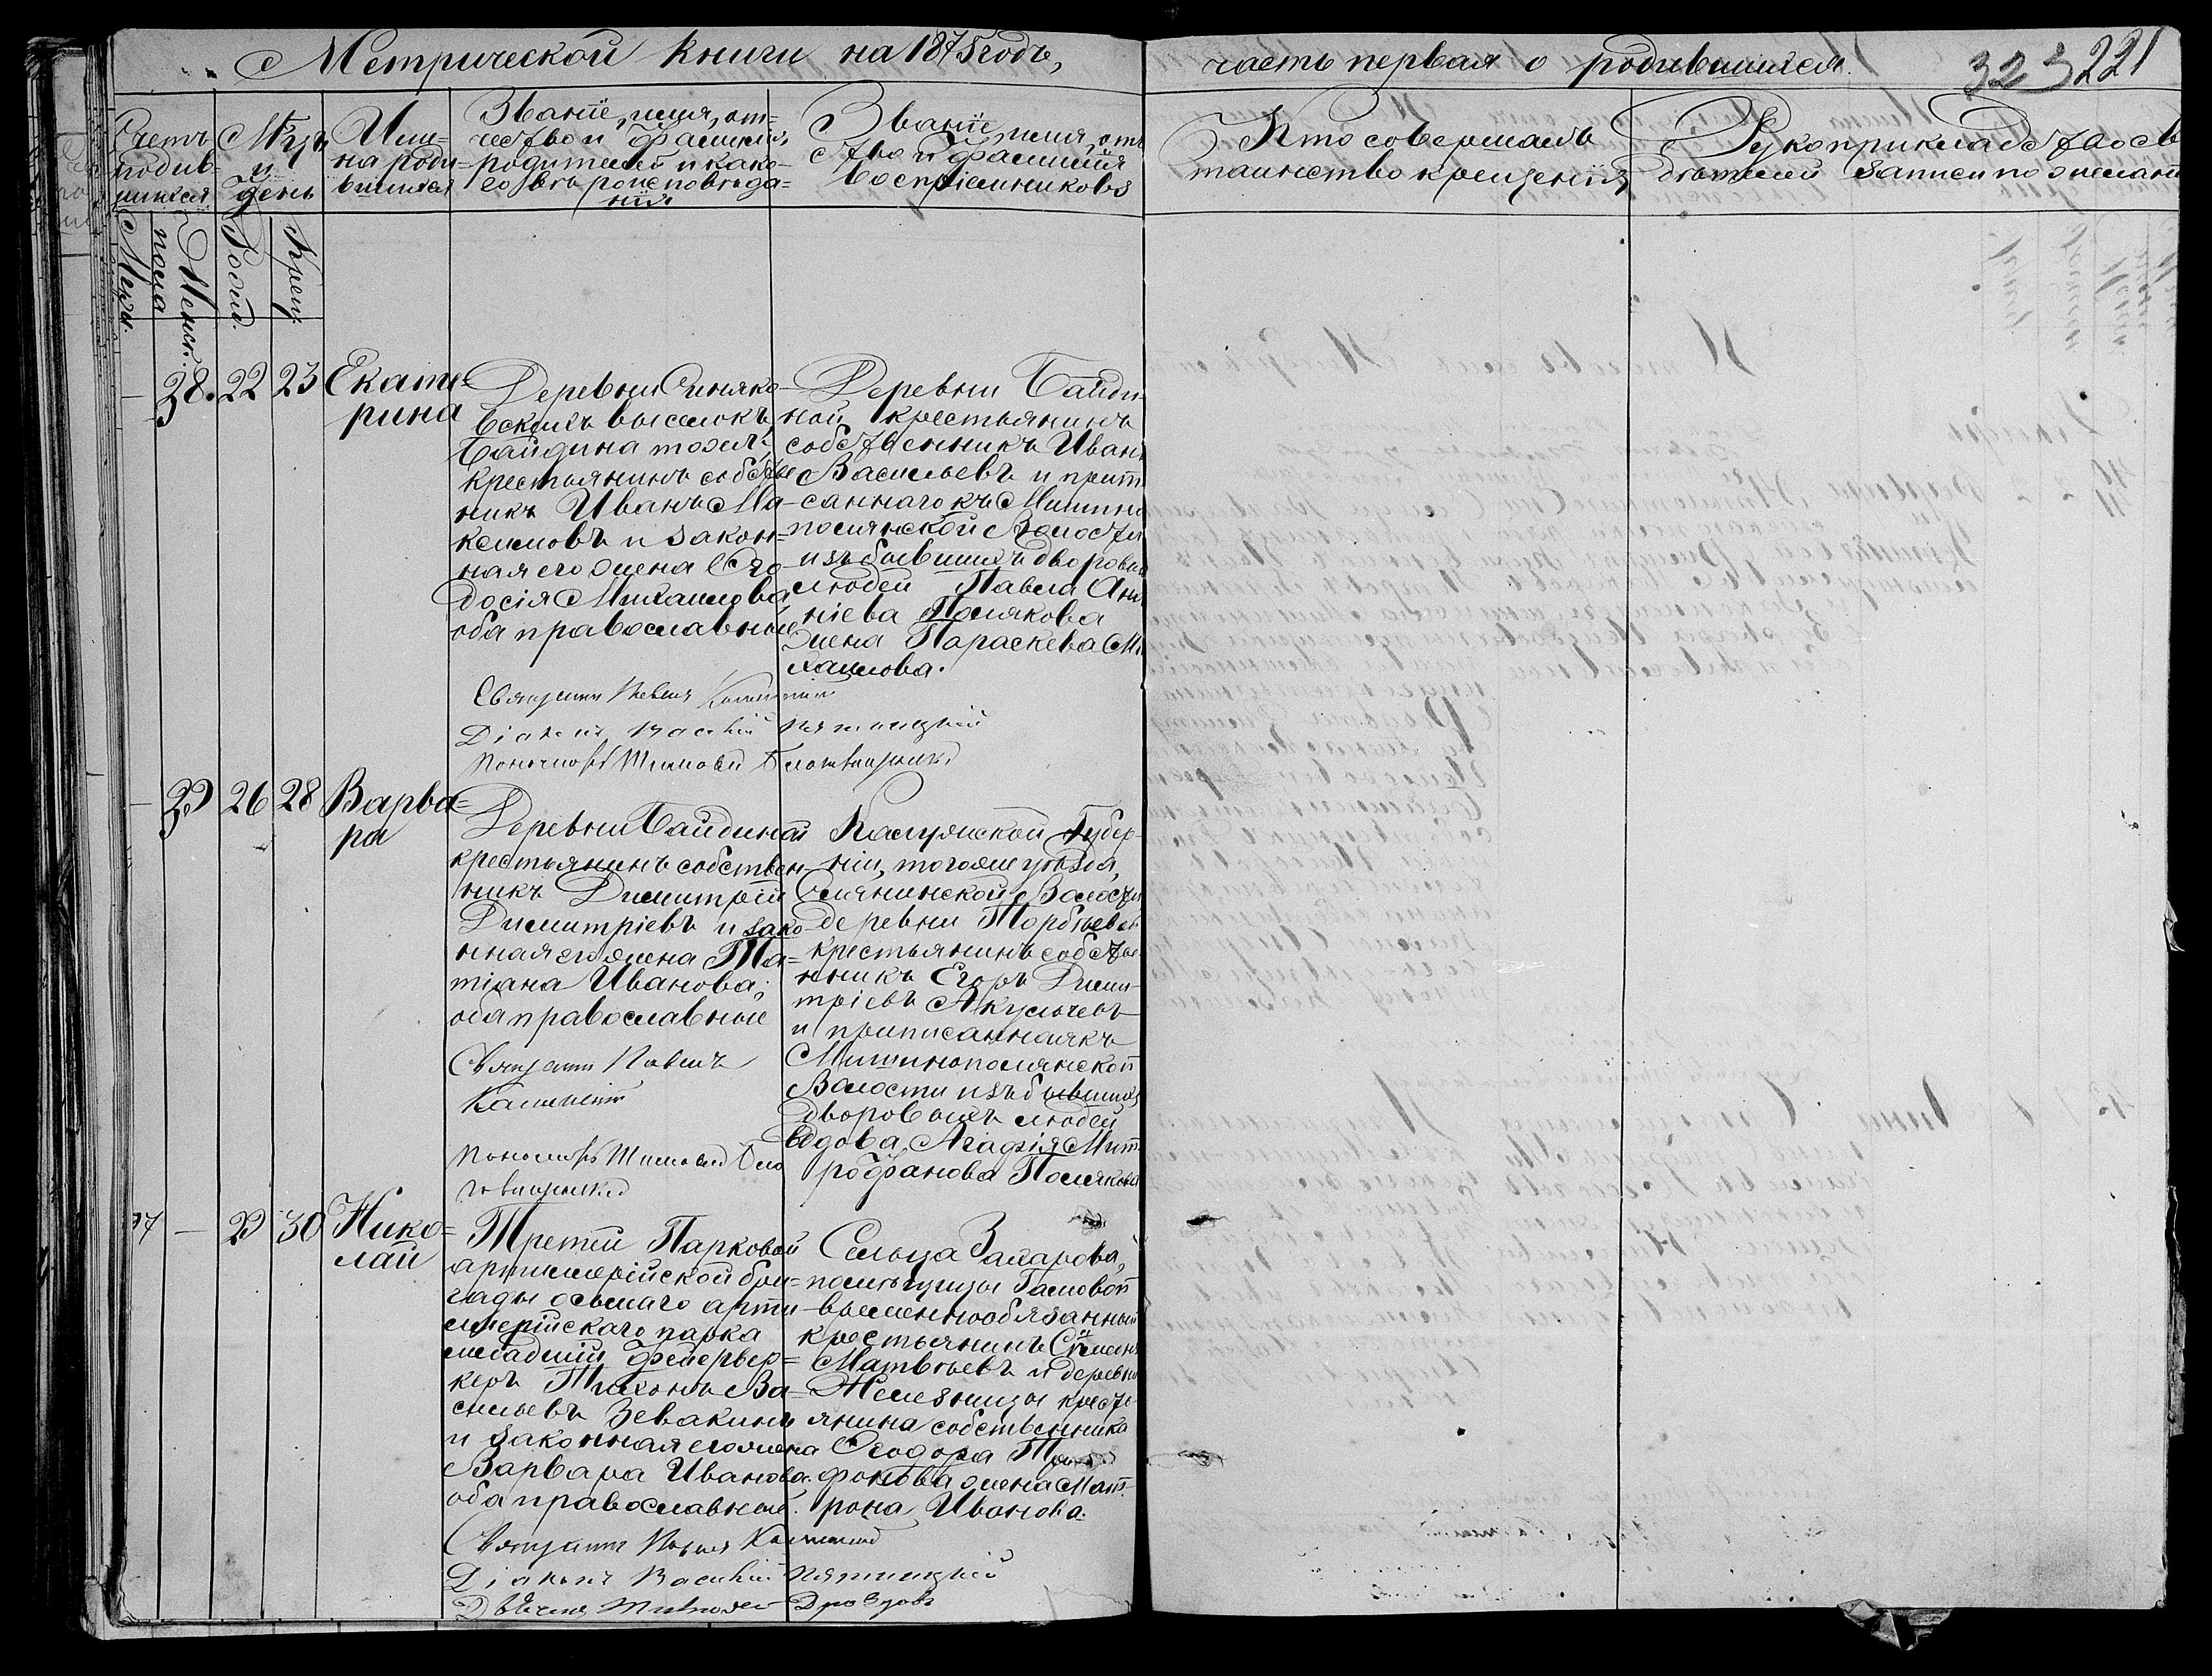 Метрической книги на 1875 годъ,
часть первая о родившихся.
323 221
Счетъ родив-шихся
Мѣсяцъ и день
Име-на роди-вшихся
Званіе, имя, от-
чество и фамилія,
родителей и како-
го вѣроисповѣда-
нія
Званіе, имя, отче-
ство и фамилія
воспріемниковъ
Кто совершалъ
таинство крещенія
Рукоприкладство сви-
дѣтелей записи по желанію
Мужс.
пола
Женск.
Рожд.
Крещ.
—
38.
22
23
Екате-
рина
Деревни Синяко-
вскихъ выселокъ
Байдина тожъ,
крестьянинъ собствен
никъ Иванъ Ма-
ксимовъ и закон-
ная его жена Ѳео-
досія Михаилова
оба православные
Деревни Байди-
ной крестьянинъ
собственникъ Иванъ
Васильевъ и припи
саннаго къ Мишино
полянской Волости
изъ бывшихъ дворовых
людей Павла Ана
ніева Полякова
жена Параскева Ми
хаилова.
Священникъ Павелъ
Діаконъ Василій Пятницкій
Пономарь
—
39
26
28
Варва-
ра
Деревни Байдиной
крестьянинъ собствен-
никъ Димитрій
Димитріевъ и зако-
нная его жена Та-
тіана Иванова;
оба православные
Калужской Губер-
ніи, того же уѣзда,
Волости
деревни Торбѣевой
крестьянинъ собстве
нникъ Егоръ Дими-
тріевъ Акулочевъ
и приписанная къ
Мишинополянской
Волости изъ бывшихъ
дворовыхъ людей
вдова Агафія Мит
рофанова Полякова
Священникъ Павелъ
Пономарь
37
—
29
30
Нико-
лай
Третей Парковой
артиллерійской бри-
гады осьмаго арти-
ллерійскаго парка
младшій фейервер-
керъ Тихонъ Ва-
сильевъ Зевакинъ
и законная его жена
Варвара Иванова.
оба православные.
Сельца Захарова,
помѣщицы Галовой
временнообязанный
крестьянинъ Симеонъ
Матвѣевъ и деревни
Железницы кресть
янина собственника
Ѳеодора Три
фонова жена Мат-
рона Иванова.
Священникъ Павелъ
Діаконъ Василій Пятницкій
Дроздовъ